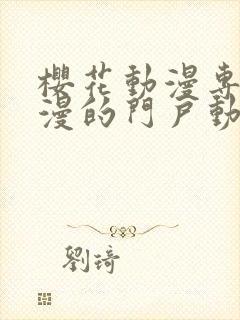 櫻花動漫專
漫的門戶動
劉琦